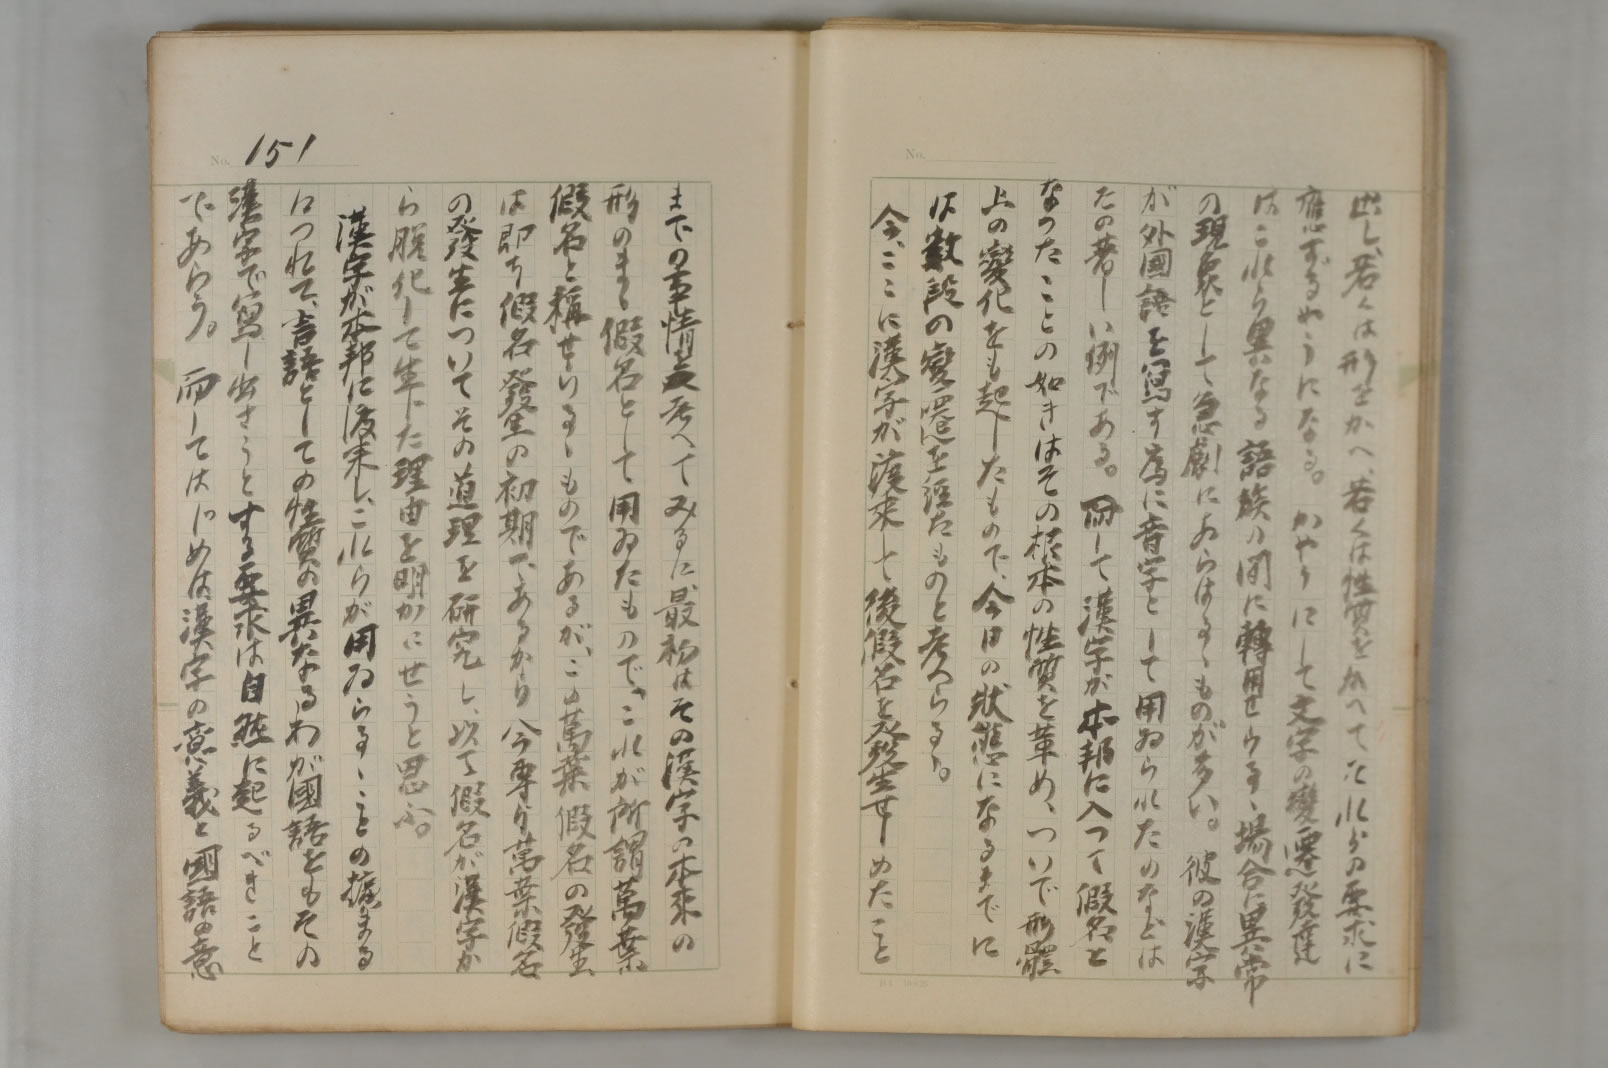 出し、若くは形をかへ、若くは性質をかへてこれらの要求に
應ずるやうになる。かやうにして文字の變遷發達
はこれら異なる語族の間に轉用せらるゝ場合に異常
の現象として急劇にあらはるゝものが多い。彼の漢字
が外國語を寫す爲に音字として用ゐられたのなどは
たの著しい例である。而して漢字が本邦に入つて假名と
なつたことの如きはその根本の性質を革め、ついで形體
上の變化をも起したもので、今日の狀態になるまでに
は數段の變遷を經たものと考へらる。
今、ここに漢字が渡來して後假名を發生せしめたこと
No.
No. 151
までの事情を考へてみるに、最初はその漢字の本來の
形のまゝ假名として用ゐたもので、これが所謂萬葉
假名と稱せらるゝものであるが、この萬葉假名の發生
は即ち假名發生の初期であるから今專ら萬葉假名
の發生についてその道理を研究し、以て假名が漢字か
ら脱化して生じた理由を明かにせうと思ふ。
漢字が本邦に渡來し、これらが用ゐらるゝことの擴まる
につれて、言語としての性質の異なるわが國語をもその
漢字で寫し出さうとする要求は自然に起るべきこと
であらう。而してはじめは漢字の意義と國語の意